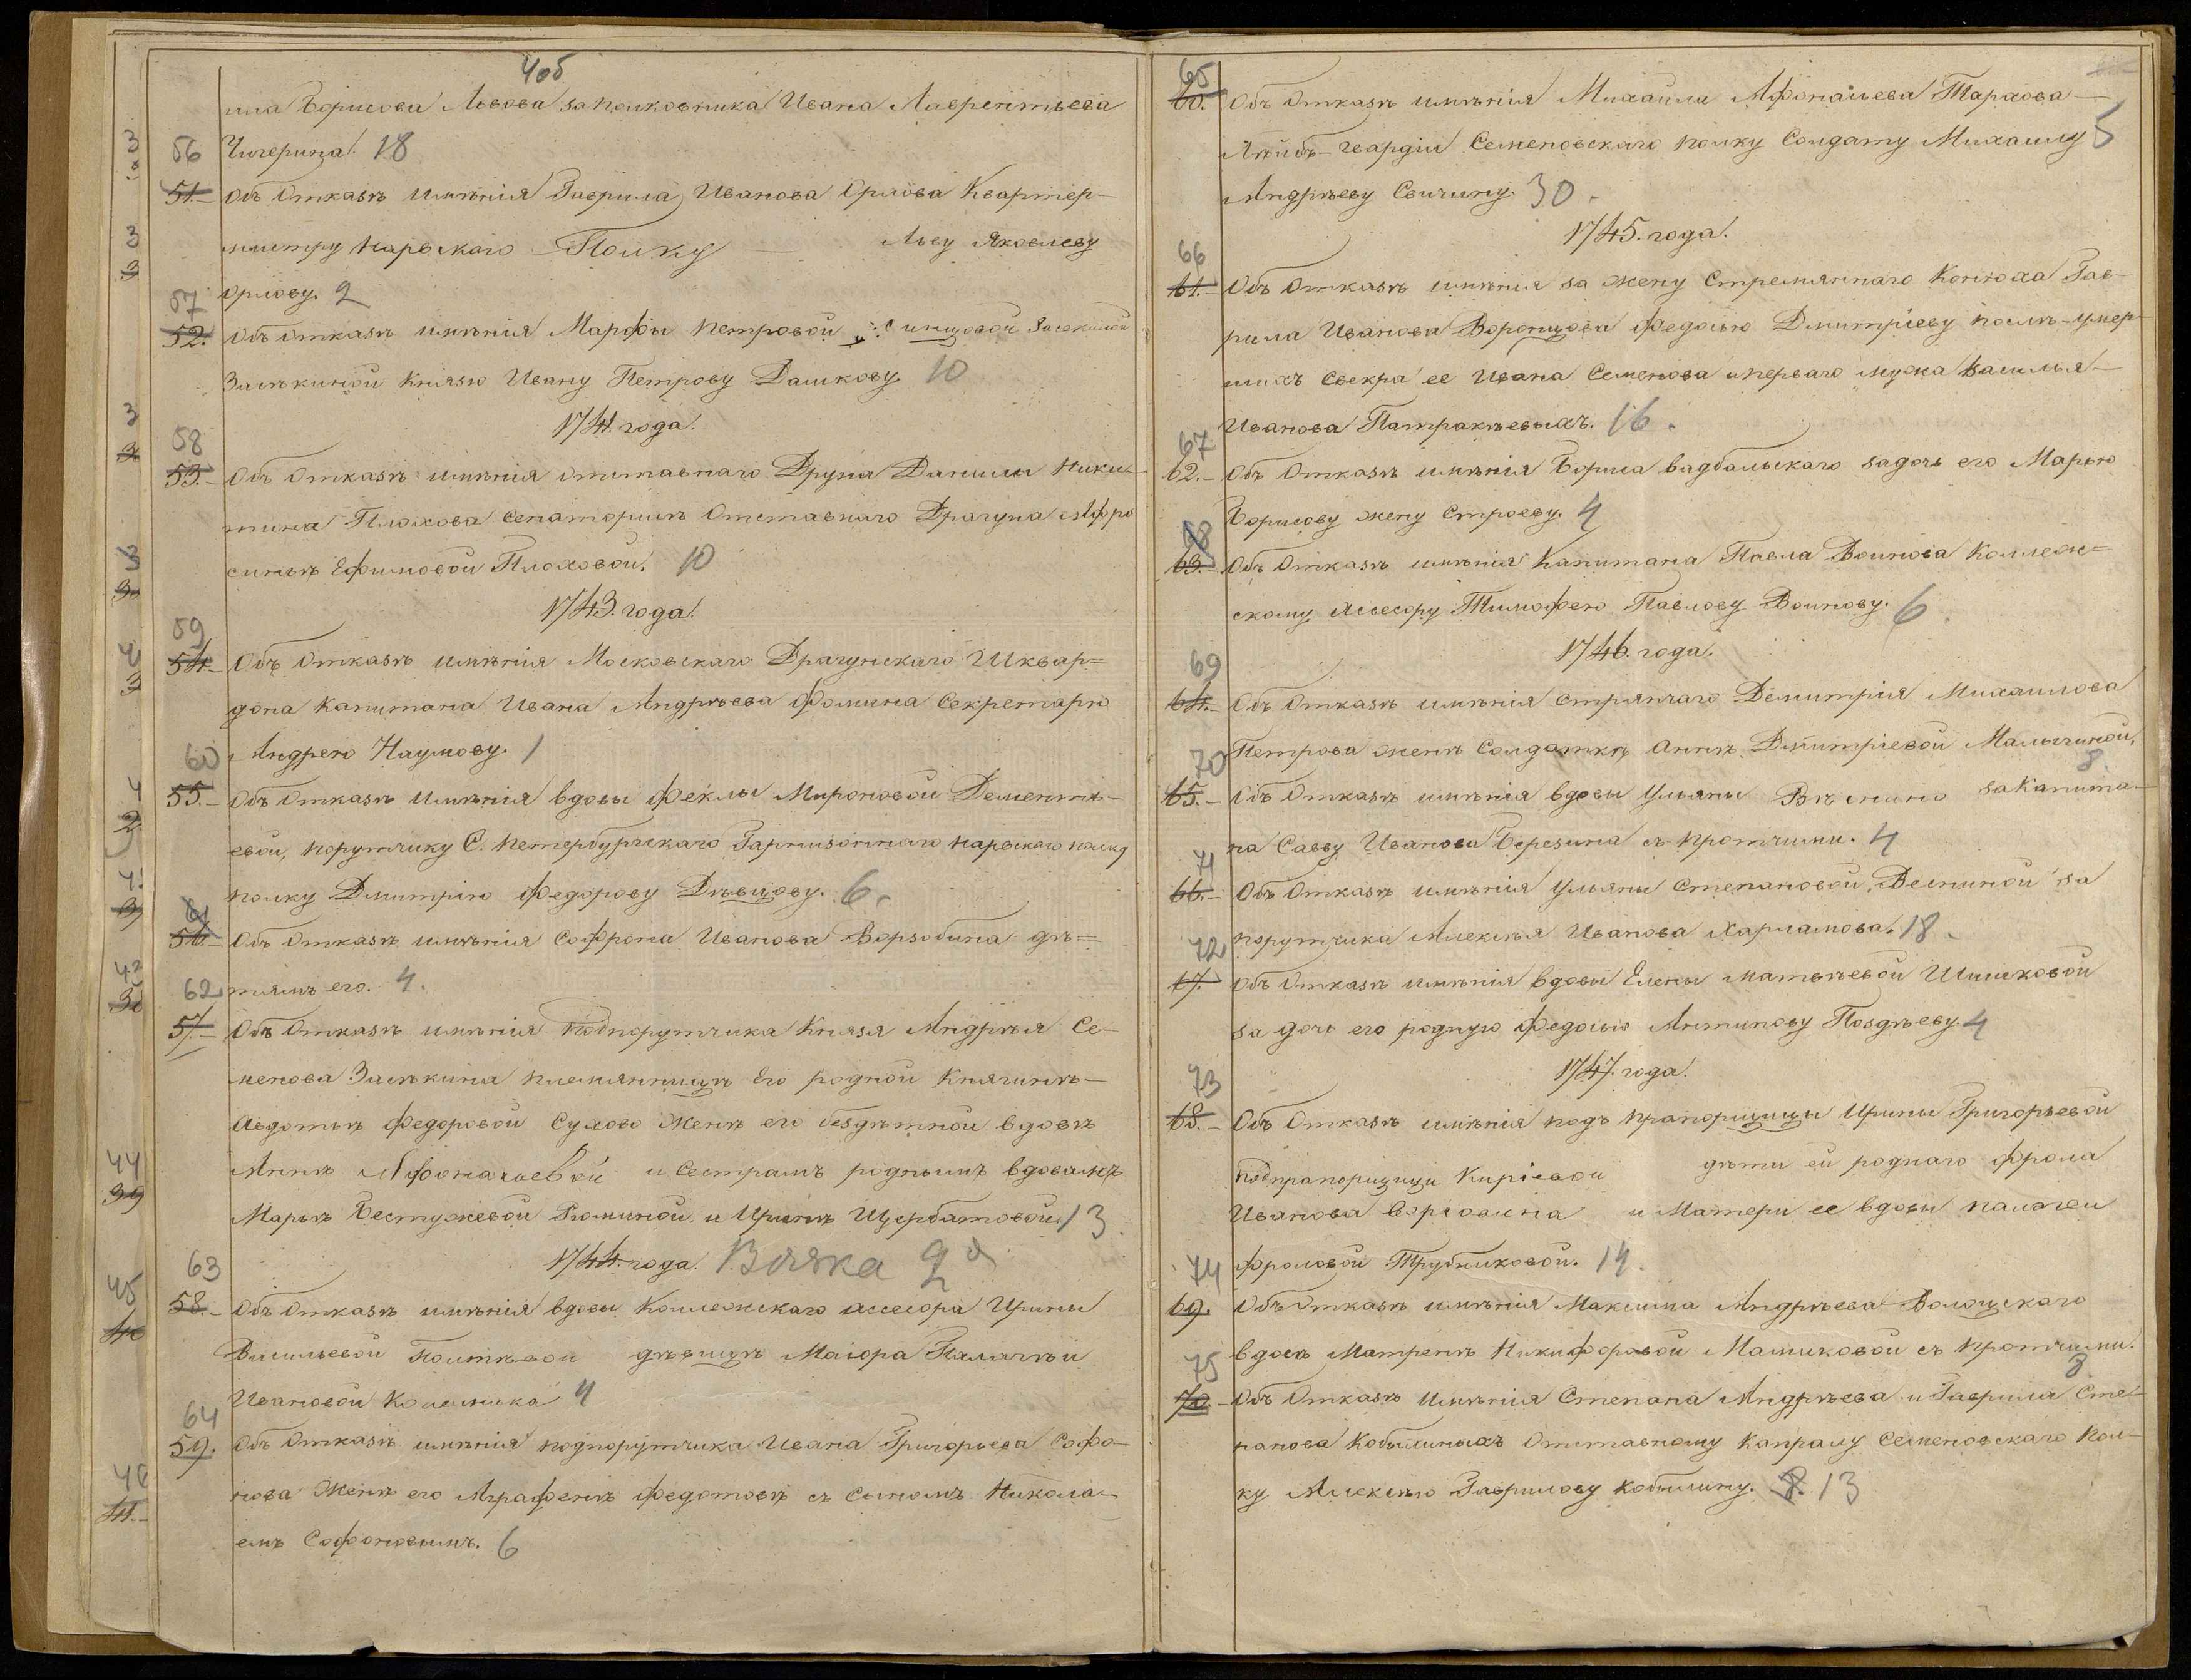 4об
ила Борисова Львова за полковника Ивана Лаврентьева
56 Чичерина. 18
51. Объ отказѣ имѣнія Гаврила Иванова Орлова Квартер-
мистру Нарвскаго Полку Льву Яковлеву
Орлову. 2
57
52. Объ отказѣ имѣнія Марфы Петровой
Засѣкиной Князю Ивану Петрову Дашкову 10
1741. года.
58
53. Объ отказѣ имѣнія отставнаго Друна Данилы Ники-
тина Плохова сенаторшѣ Отставнаго Драгуна Афро
синьѣ Ефимовой Плоховой. 10
1743. года.
59
54. Объ отказѣ имѣнія Московскаго Драгунскаго Шквар=
дона Капитана Ивана Андрѣева Фомина Секретарю
60 Андрею Наумову. 1
55. Объ отказѣ имѣнія вдовы Феклы Мироновой Дементь-
евой, порутчику С. Петербургскаго Гарнизоннаго Нарвскаго полку
полку Дмитрію Федорову Дѣвцову. 6.
61
56. Объ отказѣ имѣнія Софрона Иванова Ворзобина дѣ=
62 тямъ его. 4.
57. Объ отказѣ имѣнія Подпорутчика Князя Андрѣя Се-
менова Засѣкина племянницѣ Его родной Княгинѣ-
Авдотьѣ Федоровой Сухово Женѣ его бездѣтной вдовѣ
Аннѣ Афонасьевой и Сестрамъ роднымъ вдовамъ
Марьѣ Бестужевой Рюминой, и Иринѣ Щербатовой 13
1744. года. Вязка 2я
63
58. Объ отказѣ имѣнія вдовы Коллежскаго асессора Ирины
Васильевой дѣвицѣ Маіора Палагѣи
Ивановой 4
64
59. Объ отказѣ имѣнія подпорутчика Ивана Григорьева Софо-
нова Женѣ его Аграфенѣ Федотовѣ съ сыномъ Никола-
емъ Софоновымъ. 6
65
60. Объ отказѣ имѣнія Михайлы Афонасьева Тархова-
Лейбъ-гвардіи Семеновскаго полку Солдату Михаилу 5
Андрѣеву Свичину. 30.
1745. года.
66
61. Объ отказѣ имѣнія за жену Стремяннаго Конюха Гав-
рила Иванова Воронцова Федосью Дмитріеву послѣ-умер-
шихъ Свекра ее Ивана Семенова и перваго мужа Василья-
Иванова Патракѣевыхъ. 16.
67
62. Объ отказѣ имѣнія Бориса Вадбальскаго за дочь его Марью
Борисову жену Строеву. 4
68
63. Объ отказѣ имѣнія Капитана Павла Воинова Коллеж=
скому Асессору Тимофею Павлову Воинову. 6.
1746. года.
69
64. Объ отказѣ имѣнія стряпчаго Демитрія Михаилова
Петрова женѣ Солдаткѣ Аннѣ Дмитріевой Малыгиной, 8.
70
65. Объ отказѣ имѣнія вдовы Ульяны за Капита-
на Савву Иванова Березина съ протчими. 4
71
66. Объ отказѣ имѣнія Ульяны Степановой, Веснииной за
порутчика Алексѣя Иванова Харламова. 18.
72
67. Объ отказѣ имѣнія вдовы Елены Матвѣевой Шишковой
за дочь его родную Федосью Антипову Поздѣеву. 4
1747. года.
73
68. Объ отказѣ имѣнія подъ прапорщицы Ирины Григорьевой
подпрапорщицы дѣти ей роднаго Фрола
Иванова и Матери ее вдовы Палагеи
Фроловой Трубниковой. 14.
74
69. Объ отказѣ имѣнія Максима Андрѣева Волоцскаго
вдовѣ Матренѣ Никифоровой Мамиковой съ протчими. 3
75
70. Объ отказѣ имѣнія Степана Андрѣева и Гаврила Сте-
панова Кобылиныхъ Отставному Капралу Семеновскаго пол-
ку Алексѣю Гаврилову Кобылину. 13